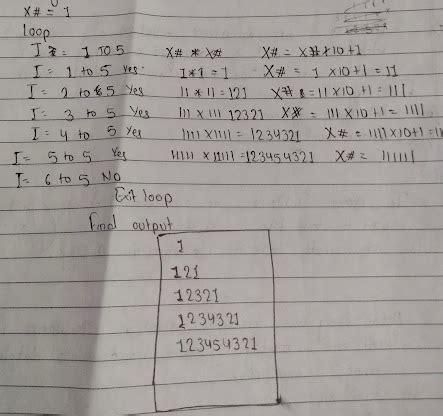 X# = 1
loop
I = 1 TO 5 X# * X# X# = X# * 10 + 1
I = 1 to 5 Yes 1 * 1 = 1 X# = 1 x 10 + 1 = 11
I = 2 to 5 Yes 11 * 11 = 121 X# = 11 x 10 + 1 = 111
I = 3 to 5 Yes 111 x 111 12321 X# = 111 x 10 + 1 = 1111
I = 4 to 5 Yes 1111 x 1111 = 1234321 X# = 1111 x 10 + 1 = 11
I = 5 to 5 Yes 11111 x 11111 = 123454321 X# = 111111
I = 6 to 5 NO
Exit loop
Final output
1
121
12321
1234321
123454321